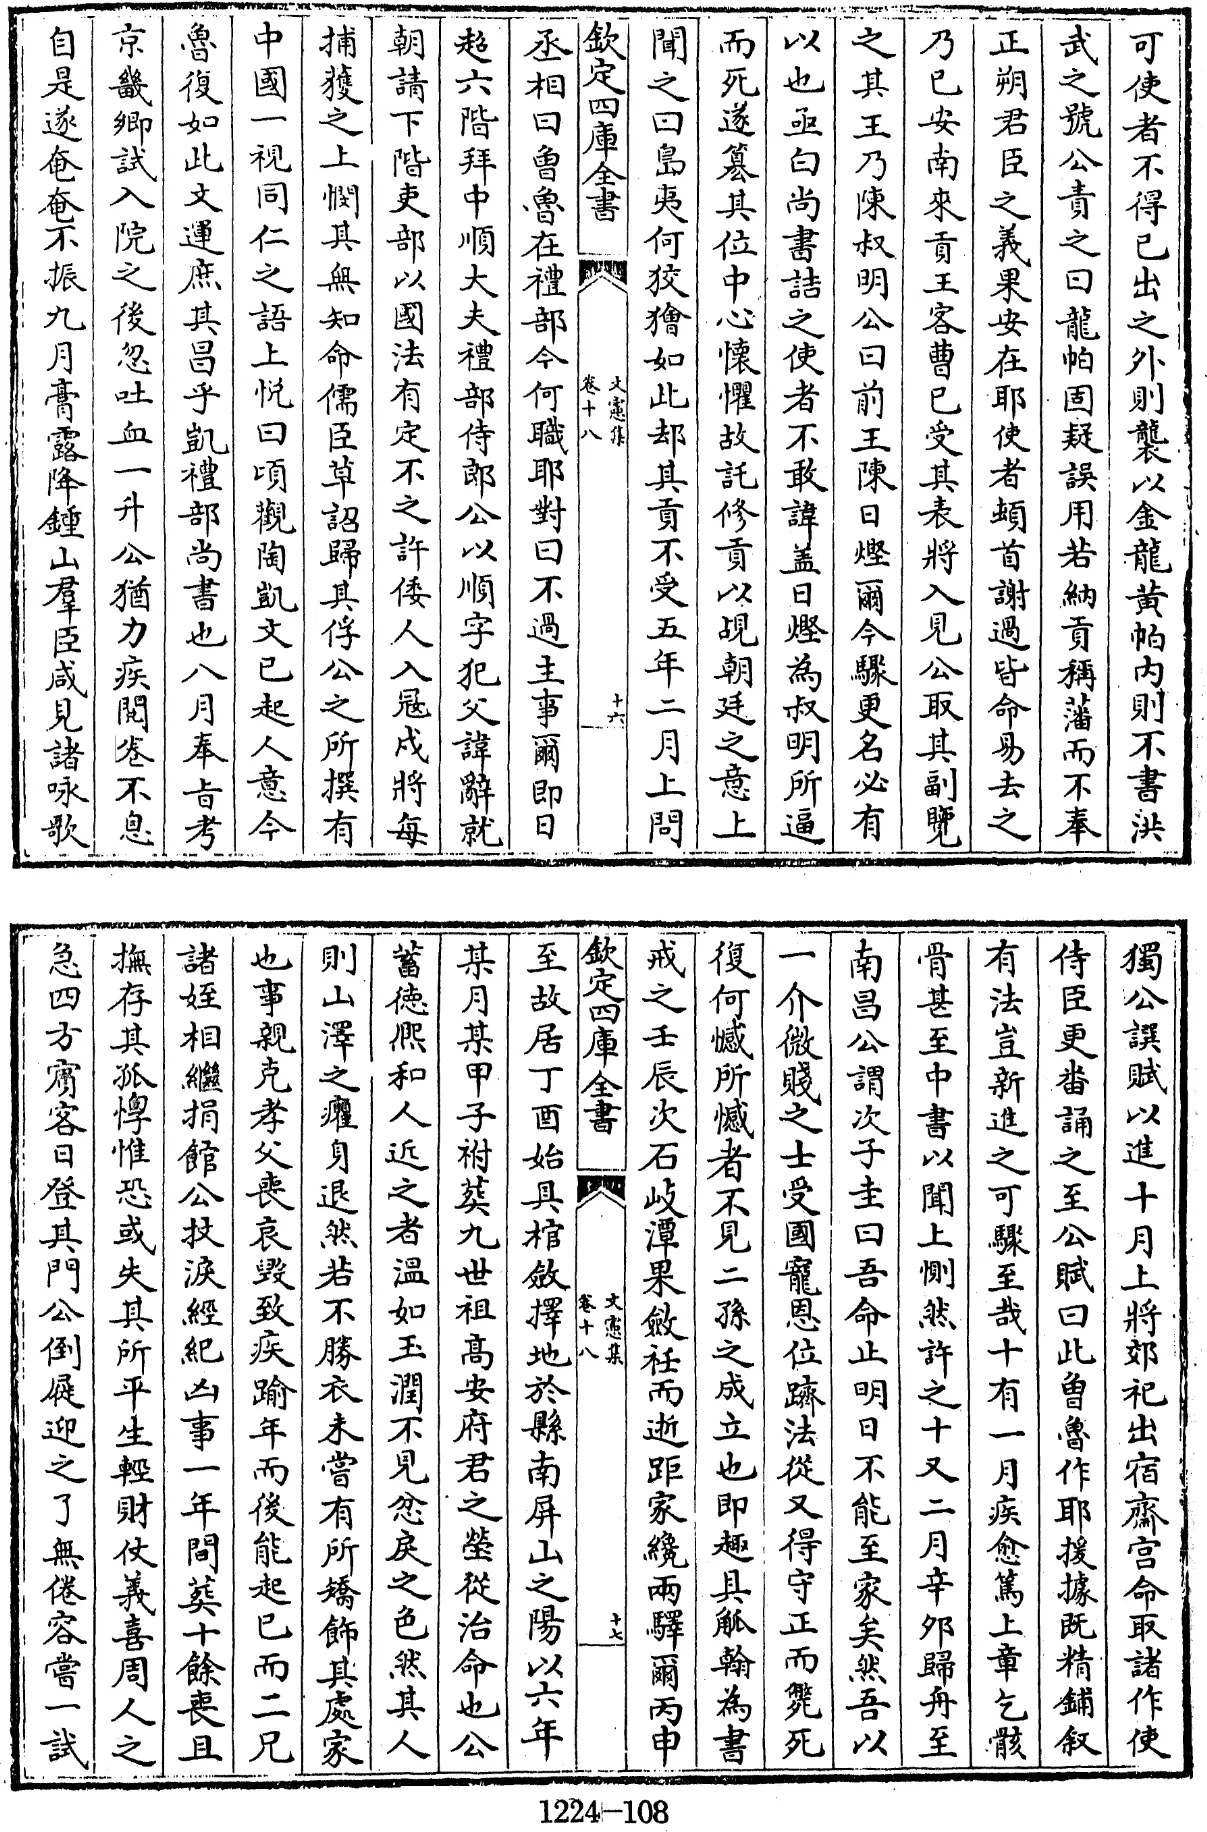 可使者不得已出之外則襲以金龍黃帕内則不書洪
武之號公責之曰龍帕固疑誤用若納貢稱藩而不奉
正朔君臣之義果安在耶使者頓首謝過皆命易去之
乃已安南來貢王客曹已受其表將入見公取其副覽
之其王乃陳叔明公曰前王陳日熞爾今驟更名必有
以也亟白尚書詰之使者不敢諱盖日熞為叔明所逼
而死遂簒其位中心懷懼故託修貢以覘朝廷之意上
聞之曰島夷何狡獪如此却其貢不受五年二月上問
欽定四庫全書
文憲集
卷十八
十六
丞相曰魯魯在禮部今何職耶對曰不過主事爾即日
超六階拜中順大夫禮部侍郎公以順字犯父諱辭就
朝請下階吏部以國法有定不之許倭人入冦戍將每
捕獲之上憫其無知命儒臣草詔歸其俘公之所撰有
中國一視同仁之語上悦曰頃觀陶凱文已起人意今
魯復如此文運庶其昌乎凱禮部尚書也八月奉㫖考
京畿鄉試入院之後忽吐血一升公猶力疾閲卷不息
自是遂奄奄不振九月膏露降鍾山羣臣咸見諸咏歌
獨公譔賦以進十月上將郊祀出宿齋宫命取諸作使
侍臣更畨誦之至公賦曰此魯魯作耶援據既精鋪叙
有法豈新進之可驟至哉十有一月疾愈篤上章乞骸
骨甚至中書以聞上惻然許之十又二月辛夘歸舟至
南昌公謂次子圭曰吾命止明日不能至家矣然吾以
一介微賤之士受國寵恩位躋法從又得守正而斃死
復何憾所憾者不見二孫之成立也即趣具觚翰為書
戒之壬辰次石岐潭果斂衽而逝距家纔兩驛爾丙申
欽定四庫全書
文憲集
卷十八
十七
至故居丁酉始具棺斂擇地於縣南屏山之陽以六年
某月某甲子祔葬九世祖高安府君之塋從治命也公
蓄徳熈和人近之者温如玉潤不見忿戾之色然其人
則山澤之癯身退然若不勝衣未嘗有所矯飾其處家
也事親克孝父喪哀毁致疾踰年而後能起已而二兄
諸姪相繼捐館公抆淚經紀凶事一年間葬十餘喪且
撫存其孤惸惟恐或失其所平生輕財仗義喜周人之
急四方賓客日登其門公倒屣迎之了無倦容嘗一試
1224-108